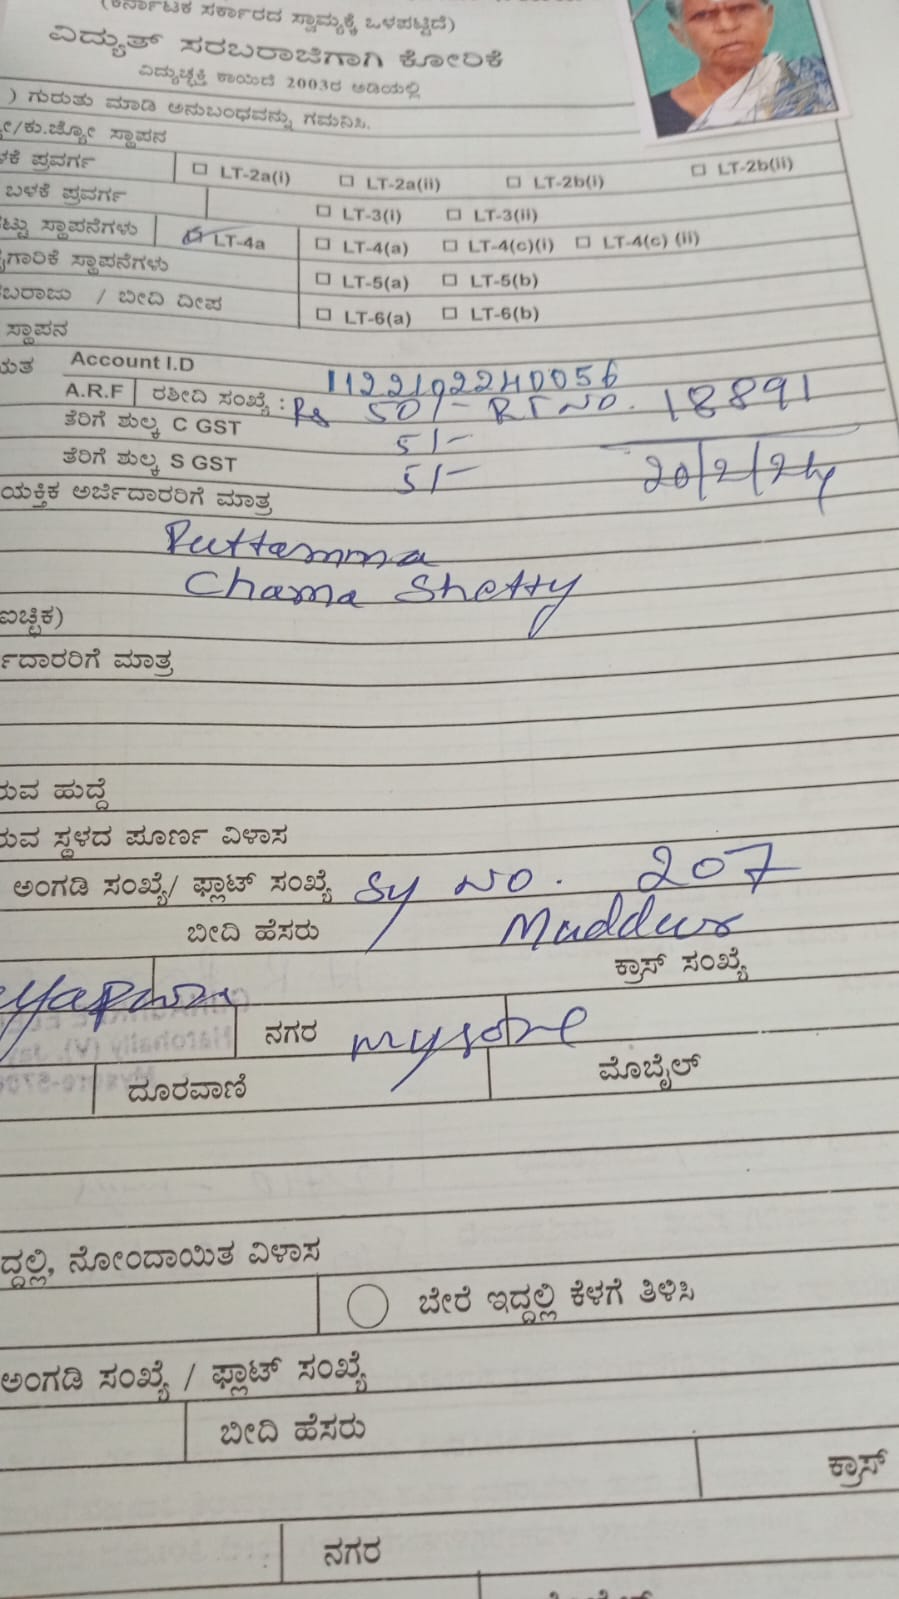 (ಕರ್ನಾಟಕ ಸರ್ಕಾರದ ಸ್ವಾಮ್ಯಕ್ಕೆ ಒಳಪಟ್ಟಿದೆ)
ವಿದ್ಯುತ್ ಸರಬರಾಜಿಗಾಗಿ ಕೋರಿಕೆ
ವಿದ್ಯುಚ್ಛಕ್ತಿ ಕಾಯಿದೆ 2003ರ ಅಡಿಯಲ್ಲಿ
) ಗುರುತು ಮಾಡಿ ಅನುಬಂಧವನ್ನು ಗಮನಿಸಿ.
/ಕು.ಜ್ಯೋ ಸ್ಥಾಪನ
ಪ್ರವರ್ಗ □ LT-2a(i) □ LT-2a(ii) □ LT-2b(i) □ LT-2b(ii)
ಬಳಕೆ ಪ್ರವರ್ಗ □ LT-3(i) □ LT-3(ii)
ಸ್ಥಾಪನೆಗಳು ☑ LT-4a □ LT-4(a) □ LT-4(c)(i) □ LT-4(c) (ii)
ಗಾರಿಕೆ ಸ್ಥಾಪನೆಗಳು □ LT-5(a) □ LT-5(b)
ಬರಾಜು / ಬೀದಿ ದೀಪ □ LT-6(a) □ LT-6(b)
ಸ್ಥಾಪನ
Account I.D 1122102240056
A.R.F ರಶೀದಿ ಸಂಖ್ಯೆ : Rs 50/- RT NO. 18891
ತೆರಿಗೆ ಶುಲ್ಕ C GST 5/-
ತೆರಿಗೆ ಶುಲ್ಕ S GST 5/- 20/2/24
ಯಕ್ತಿಕ ಅರ್ಜಿದಾರರಿಗೆ ಮಾತ್ರ
Puttamma
Chama Shetty
ಐಚ್ಛಿಕ)
ದಾರರಿಗೆ ಮಾತ್ರ
ರುವ ಹುದ್ದೆ
ರುವ ಸ್ಥಳದ ಪೂರ್ಣ ವಿಳಾಸ
ಅಂಗಡಿ ಸಂಖ್ಯೆ/ ಫ್ಲಾಟ್ ಸಂಖ್ಯೆ Sy NO. 207
ಬೀದಿ ಹೆಸರು Maddur
ಕ್ರಾಸ್ ಸಂಖ್ಯೆ
ನಗರ mysore
ದೂರವಾಣಿ ಮೊಬೈಲ್
ದ್ದಲ್ಲಿ, ನೋಂದಾಯಿತ ವಿಳಾಸ
ಬೇರೆ ಇದ್ದಲ್ಲಿ ಕೆಳಗೆ ತಿಳಿಸಿ
ಅಂಗಡಿ ಸಂಖ್ಯೆ / ಫ್ಲಾಟ್ ಸಂಖ್ಯೆ
ಬೀದಿ ಹೆಸರು
ಕ್ರಾಸ್
ನಗರ